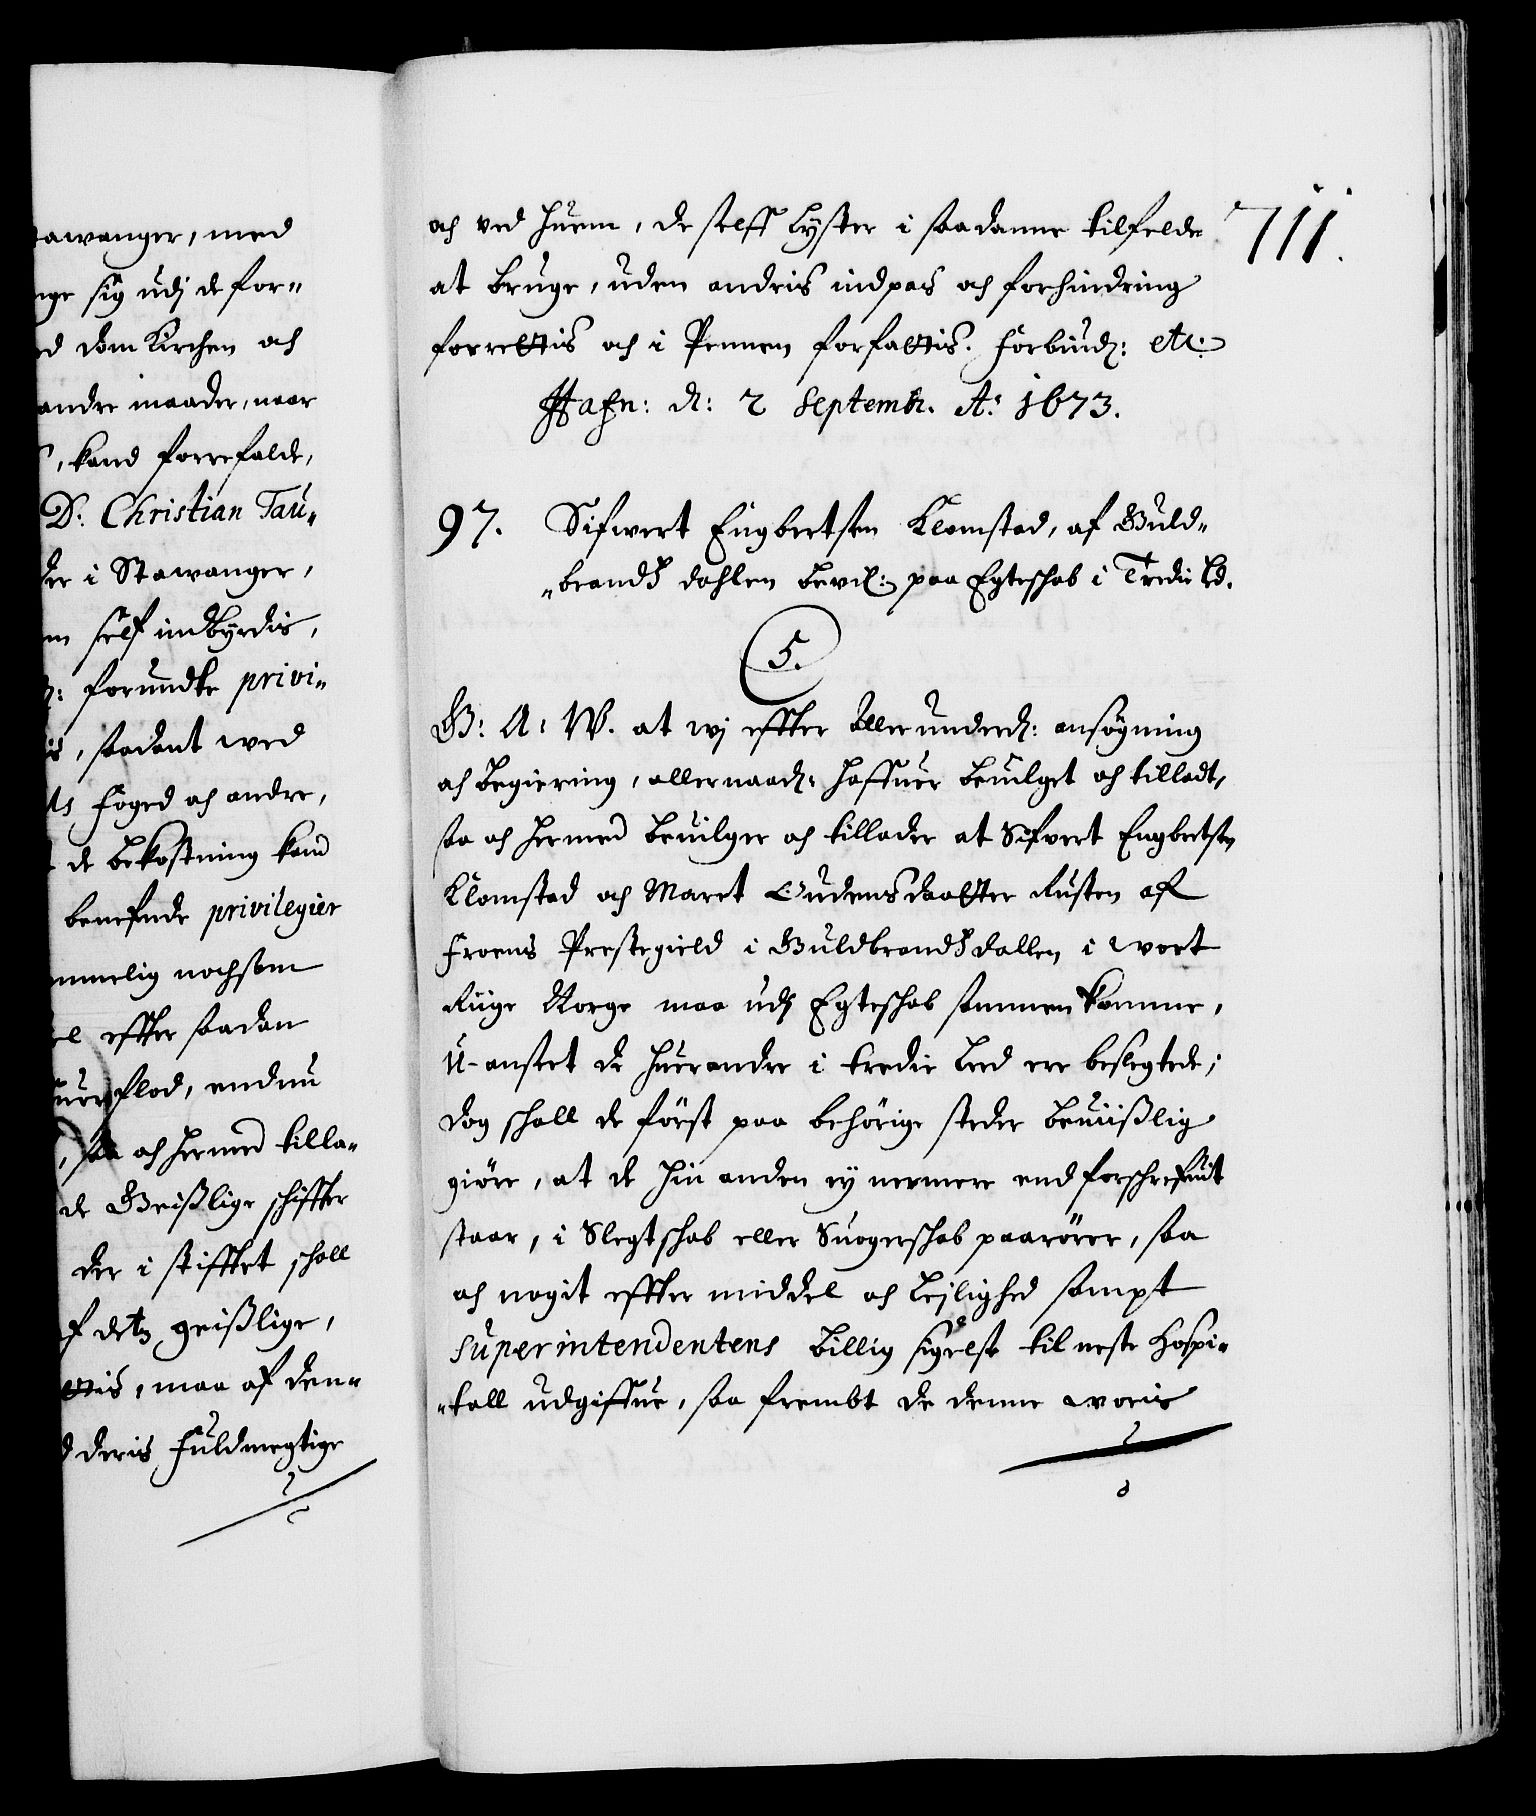 awanger, med
nge sig udj de for¬
ed dom Kirchen och
andre maader, naar
, kand forrefalde,
D: Christian Tau¬
der i Stawanger,
m self indbyrdis,
: forundte privi¬
is, saadant wed
ts foged och andre,
de bekostning kand
benefnde privilegier
mmelig nochsom
el effter saadan
flod, endnu
, saa och hermed tilla¬
de Geistlige schiffter
der i stifftet schall
f detz geistlige,
ttis, maa af den¬
d deris fuldmegtige
711.
och ved huem, de selff lyster i saadanne tilfelde
at bruge, uden andris indpas och forhindring
forrettis och i Pennen forfattis. forbiud: etc:
Hafn: d: 2 Septemb. Ao 1673.
97. Sifwert Engbertsen Klomstad, af Guld¬
¬brands dahlen bevil: paa Egteschab i Tredie led.
5.
G: A: W. at wj effter allerunderd: ansøgning
och begiering, allernaad: haffuer beuilget och tilladt,
saa och hermed beuilger och tillader at Sifvert Engbertsen
Klomstad och Maret Oudensdaatter Rusten af
Froens Prestegield i Guldbrandsdallen i wort
Riige Norge maa udj Egteschab sammen komme,
U-anset de huerandre i tredie Leed ere beslegtede;
dog schall de først paa behørige steder beuiislig
giøre, at de hin anden ey nermere end forschrefuit
staar, i Slegtschab eller Suogerschab paarører, saa
och nogit effter middel och leilighed sampt
Superintendentens billig sigelse til neste Hospi¬
¬tall udgiffue, saa frembt de denne woris